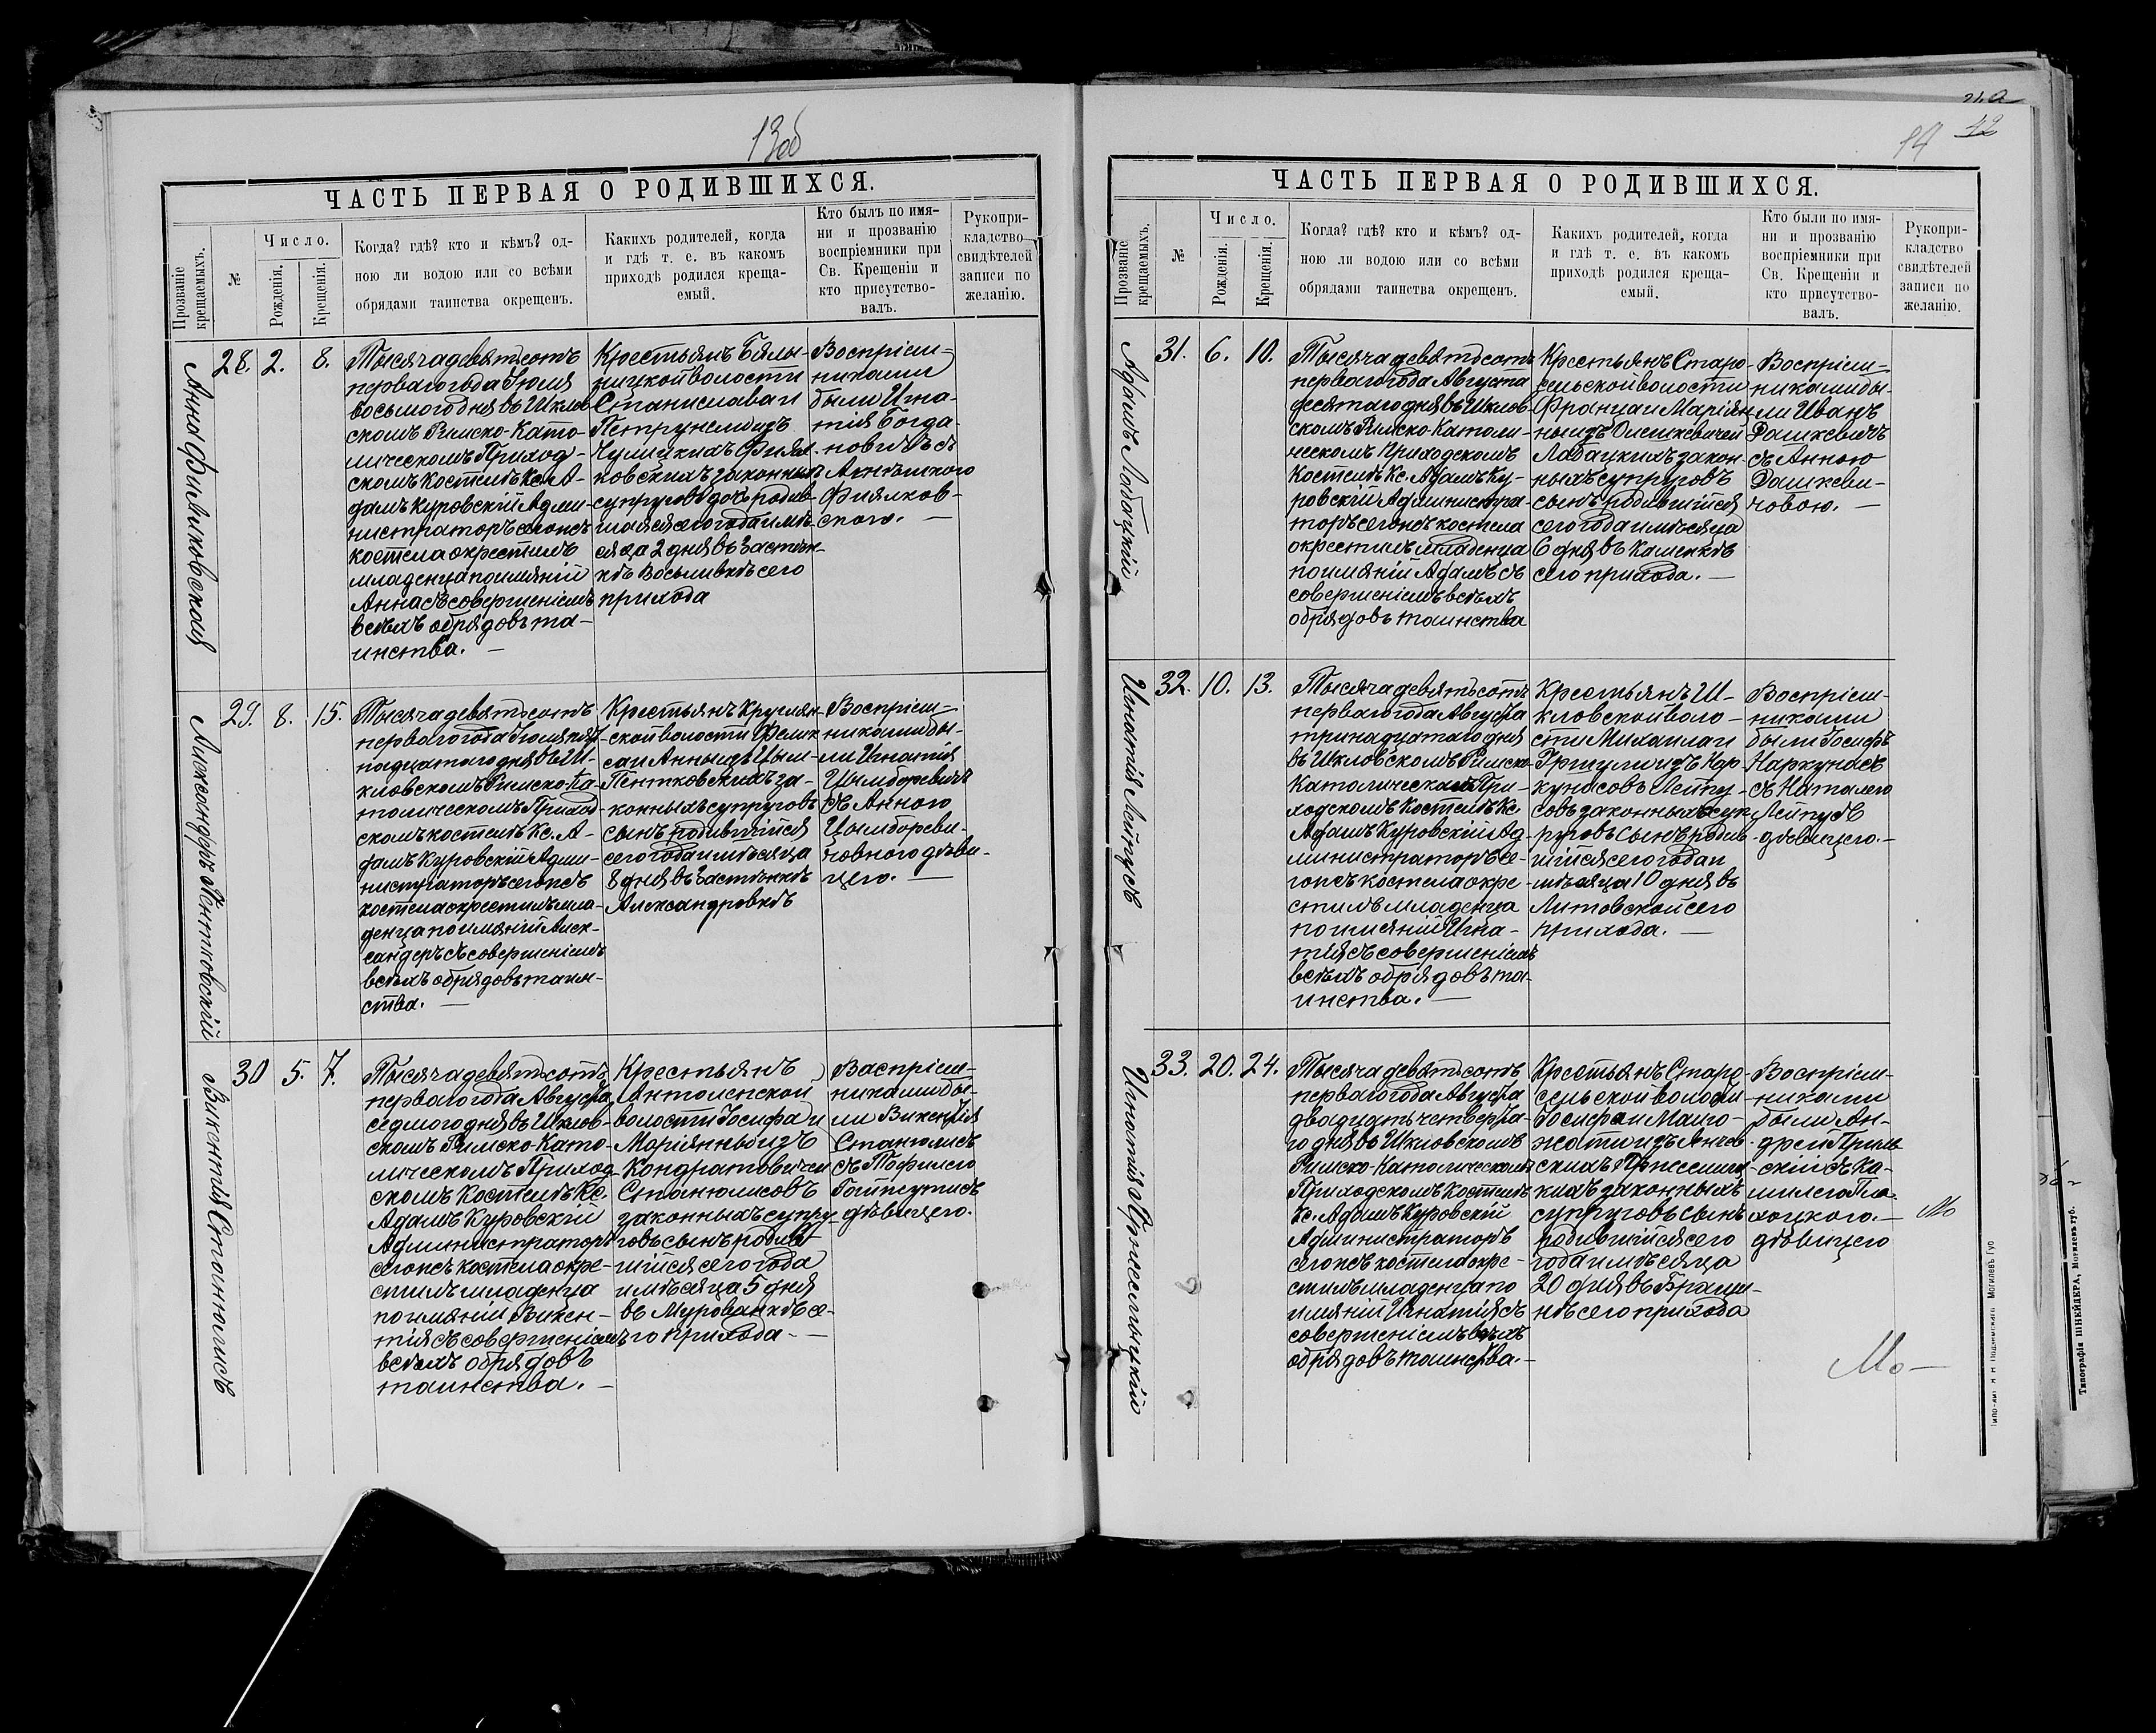 13об
ЧАСТЬ ПЕРВАЯ О РОДИВШИХСЯ.
Прозваніе крещаемыхъ.
№
Число.
Рожденія.
Крещенія.
Когда? гдѣ? кто и кѣмъ? од-
ною ли водою или со всѣми
обрядами таинства окрещенъ.
Какихъ родителей, когда
и гдѣ т. е. въ какомъ
приходѣ родился креща-
емый.
Кто былъ по имя-
ни и прозванію
воспріемники при
Св. Крещеніи и
кто присутство-
валъ.
Рукопри-
кладство
свидѣтелей
записи по
желанію.
Анна
28. 2. 8.
Тысяча девятьсотъ
перваго года Іюля
восьмого дня въ Шклов
скомъ Римско-Като-
лическомъ Приход-
скомъ Костелѣ Кс. А-
дамъ Куровскій Адми-
нистраторъ сегожъ
костела окрестилъ
младенца по имяній
Анна съ совершеніемъ
всѣхъ обрядовъ та-
инства. —
Крестьянъ Бялы-
ницкой волости
Станислава и
Петрунели изъ
законныхъ
супруговъ дочь родив-
шаяся сего года и мѣ-
сяца 2 дня въ Застѣн-
кѣ сего
прихода
Воспріем-
никами
были Игна-
тія Богда-
новичъ съ
ковс-
кого. —
Александръ Пентковскій
29. 8. 15.
Тысяча девятьсотъ
перваго года Іюля пят-
надцатого дня въ Ш-
кловскомъ Римско-Ка-
толическомъ Приход-
скомъ костелѣ Кс. А-
дамъ Куровскій Адми-
нистраторъ сегожъ
костела окрестилъ мла-
денца по имяній Алек-
сандеръ съ совершеніемъ
всѣхъ обрядовъ таин-
ства. —
Крестьянъ Круглян-
ской волости Фелик
са и Анны изъ Цым-
Пентковскихъ за-
конныхъ супруговъ
сынъ родившійся
сего года и мѣсяца
8 дня въ Застѣнкѣ
Александровкѣ
Воспріем-
никами бы-
ли Игнатія
Цымборевичъ
съ Анною
Цымбореви-
човною дѣви-
цею. —
Викентія Станюлисъ
30 5. 7.
Тысяча девятьсотъ
перваго года Августа
седмого дня въ Шклов-
скомъ Римско-Като-
лическомъ Приход-
скомъ Костелѣ Кс.
Адамъ Куровскій
Администраторъ
сегожъ костела окре-
стилъ младенца
по имяній Викен-
тія съ совершеніемъ
всѣхъ обрядовъ
таинства. —
Крестьянъ
волости Іосифа и
Маріянны изъ
Кондратовичеи
Станюлисовъ
законныхъ супру-
говъ сынъ родив-
шійся сего года
и мѣсяца 5 дня
въ Мурованкѣ се-
го прихода. —
Васпріем-
никами бы-
ли Викентія
Станюлисъ
съ Тофилею
дѣвицею.
14 12
ЧАСТЬ ПЕРВАЯ О РОДИВШИХСЯ.
Прозваніе крещаемыхъ.
№
Число.
Рожденія.
Крещенія.
Когда? гдѣ? кто и кѣмъ? од-
ною ли водою или со всѣми
обрядами таинства окрещенъ.
Какихъ родителей, когда
и гдѣ т. е. въ какомъ
приходѣ родился креща-
емый.
Кто были по имя-
ни и прозванію
воспріемники при
Св. Крещеніи и
кто присутство-
валъ.
Рукопри-
кладство
свидѣтелей
записи по
желанію.
Адамъ Лабоцкій
31. 6. 10.
Тысяча девятьсотъ
перваго года Августа
десятаго дня въ Шклов-
скомъ Римско-Католи-
ческомъ Приходскомъ
Костелѣ Кс. Адамъ Ку-
ровскій Администра-
торъ сегожъ костела
окрестилъ младенца
по имяній Адамъ съ
совершеніемъ всѣхъ
обрядовъ таинства
Крестьянъ Старо-
сельской волости
Франца и Маріян-
ны изъ Олешкевичей
Лабацкихъ закон-
ныхъ супруговъ
сынъ родившійся
сего года и мѣсяца
6 дня въ Каменкѣ
сего прихода. —
Воспріем-
никами бы-
ли Иванъ
Рашкевичъ
съ Анною
Рашкеви-
човою. —
Игнатія Лейпусъ
32. 10. 13.
Тысяча девятьсотъ
перваго года Августа
тринадцатаго дня
въ Шкловскомъ Римско-
Католическомъ При-
ходскомъ Костелѣ Кс.
Адамъ Куровскій Ад-
министраторъ се-
гожъ костела окре-
стилъ младенца
по имяній Игна-
тія съ совершеніемъ
всѣхъ обрядовъ та-
инства. —
Крестьянъ Ш-
кловской воло-
сти Михаила и
изъ Нар-
кунасовъ Лейпу-
совъ законныхъ суп-
руговъ сынъ родив-
шійся сего года и
мѣсяца 10 дня въ
Литовской сего
прихода. —
Воспріем-
никами
были Іосифъ
Наркунасъ
съ Наталею
Лейпусъ
дѣвицею. —
Игнатія
33. 20. 24.
Тысяча девятьсотъ
перваго года Августа
двадцать четверта-
го дня въ Шкловскомъ
Римско-Католическомъ
Приходскомъ Костелѣ
Кс. Адамъ Куровскій
Администраторъ
сегожъ костела окре-
стилъ младенца по
имяній Игнатія съ
совершеніемъ всѣхъ
обрядовъ таинства. —
Крестьянъ Старо-
сельской волости
Іосифа и Малго-
жаты изъ
законныхъ
супруговъ сынъ
родившійся сего
года и мѣсяца
20 дня въ
сего прихода
Воспріем-
никами
были Ан-
дрей
съ Ка-
милею
дѣвицею
Типографія ШНЕЙДЕРА, Могилевъ губ.